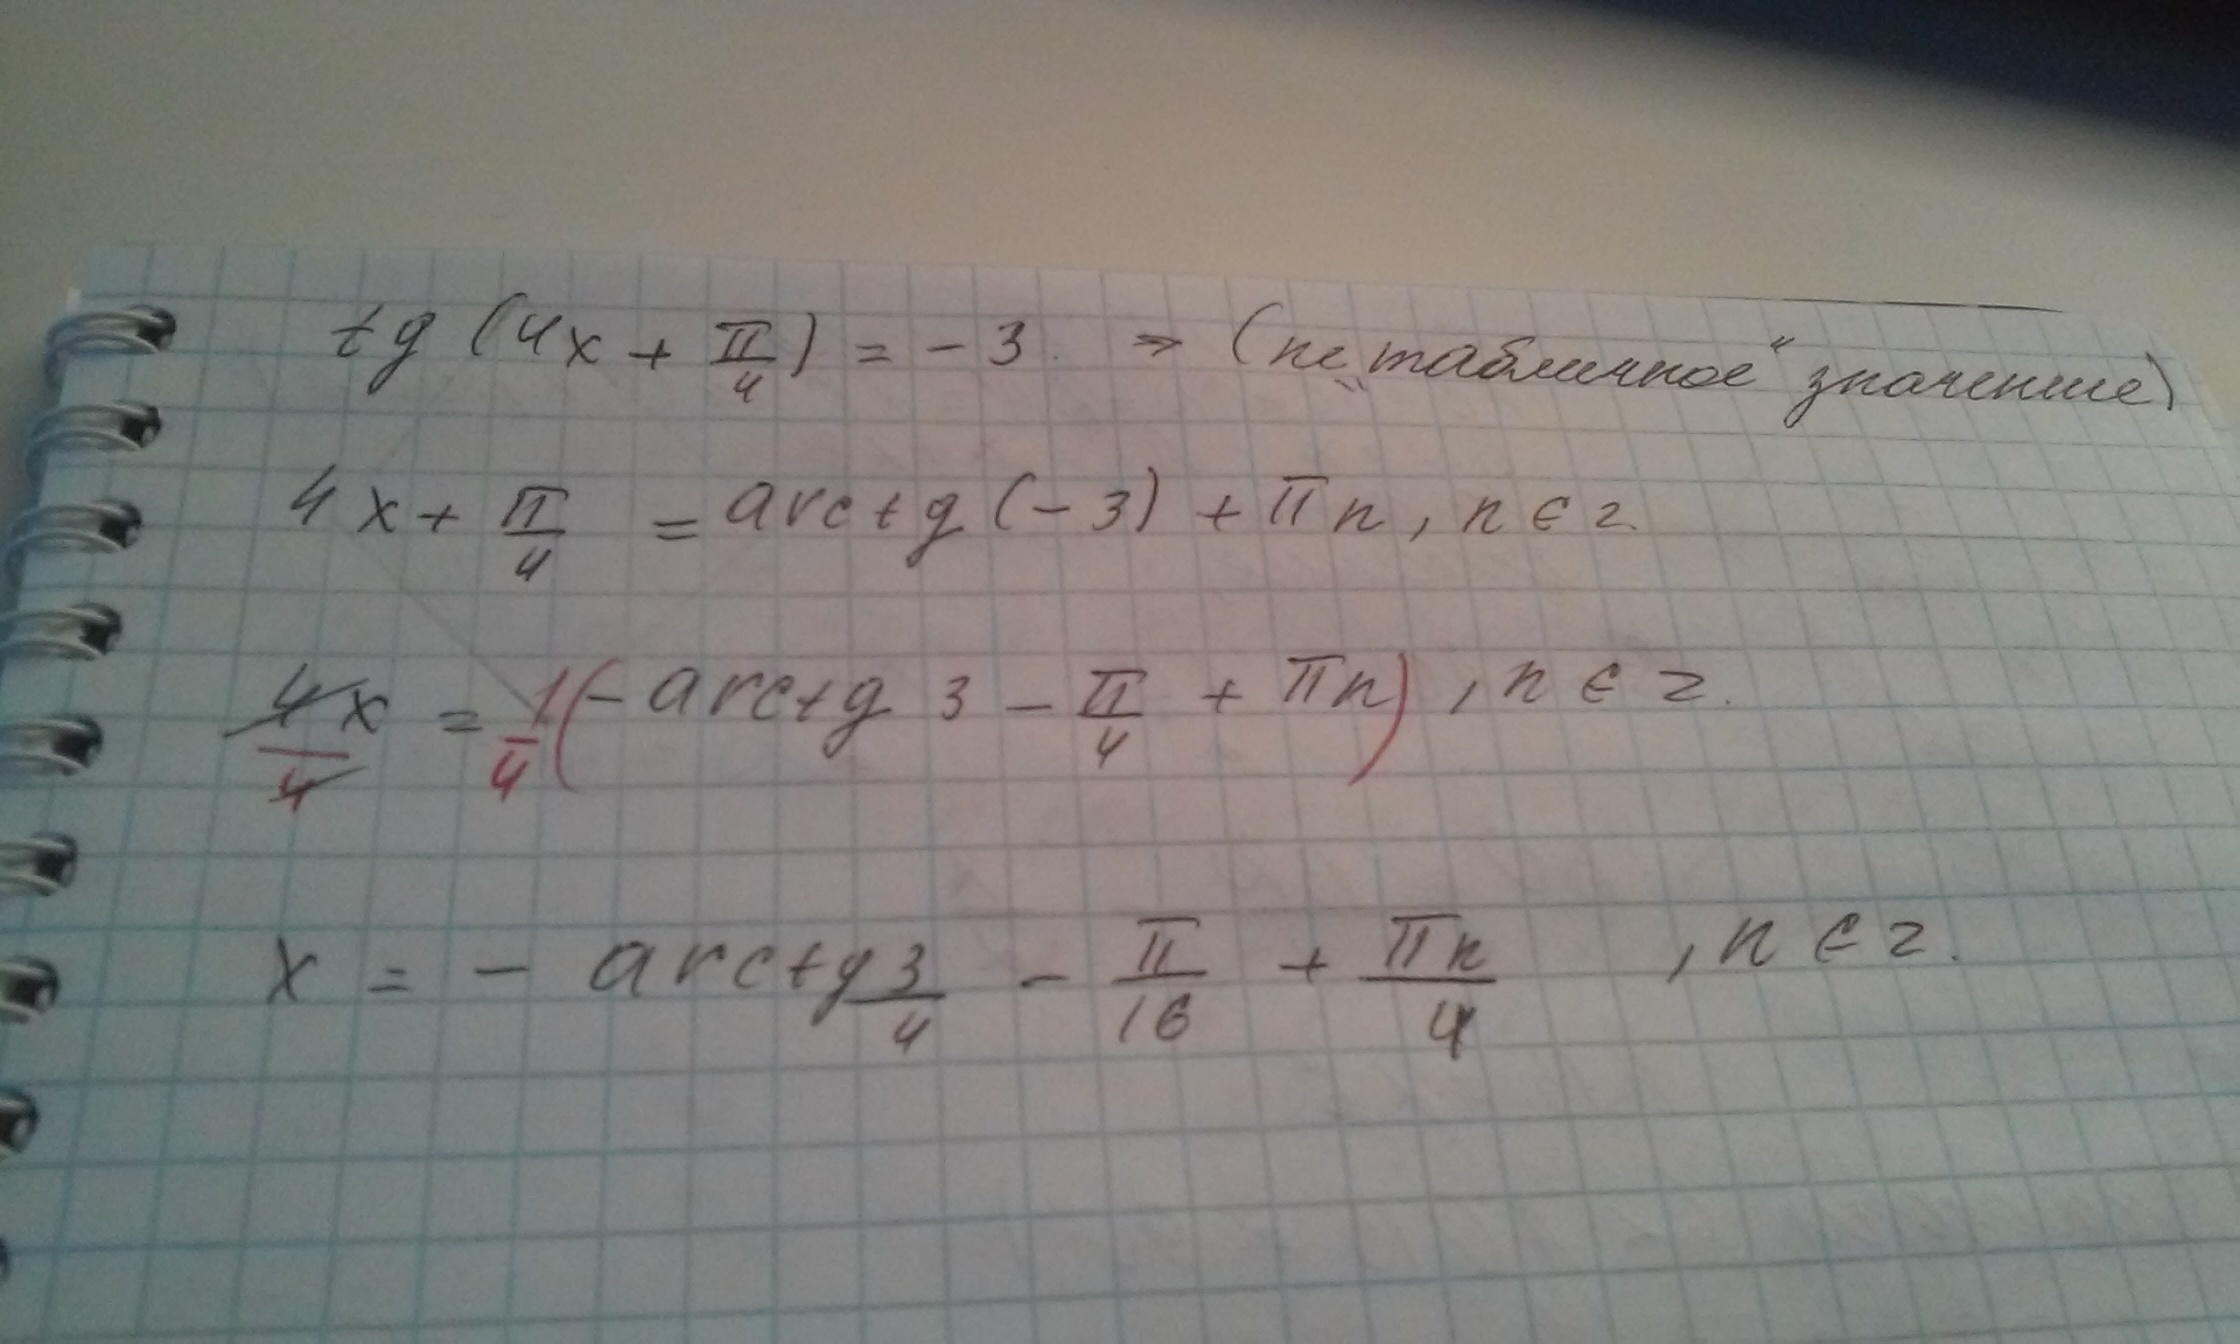 tg (4x + π/4) = - 3. ⇒ (не „табличное“ значение)
4x + π/4 = arctg (- 3) + πn, n ∈ z.
4x/4 = 1/4 (- arctg 3 - π/4 + πn), n ∈ z.
x = - arctg 3/4 - π/16 + πn/4 , n ∈ z.